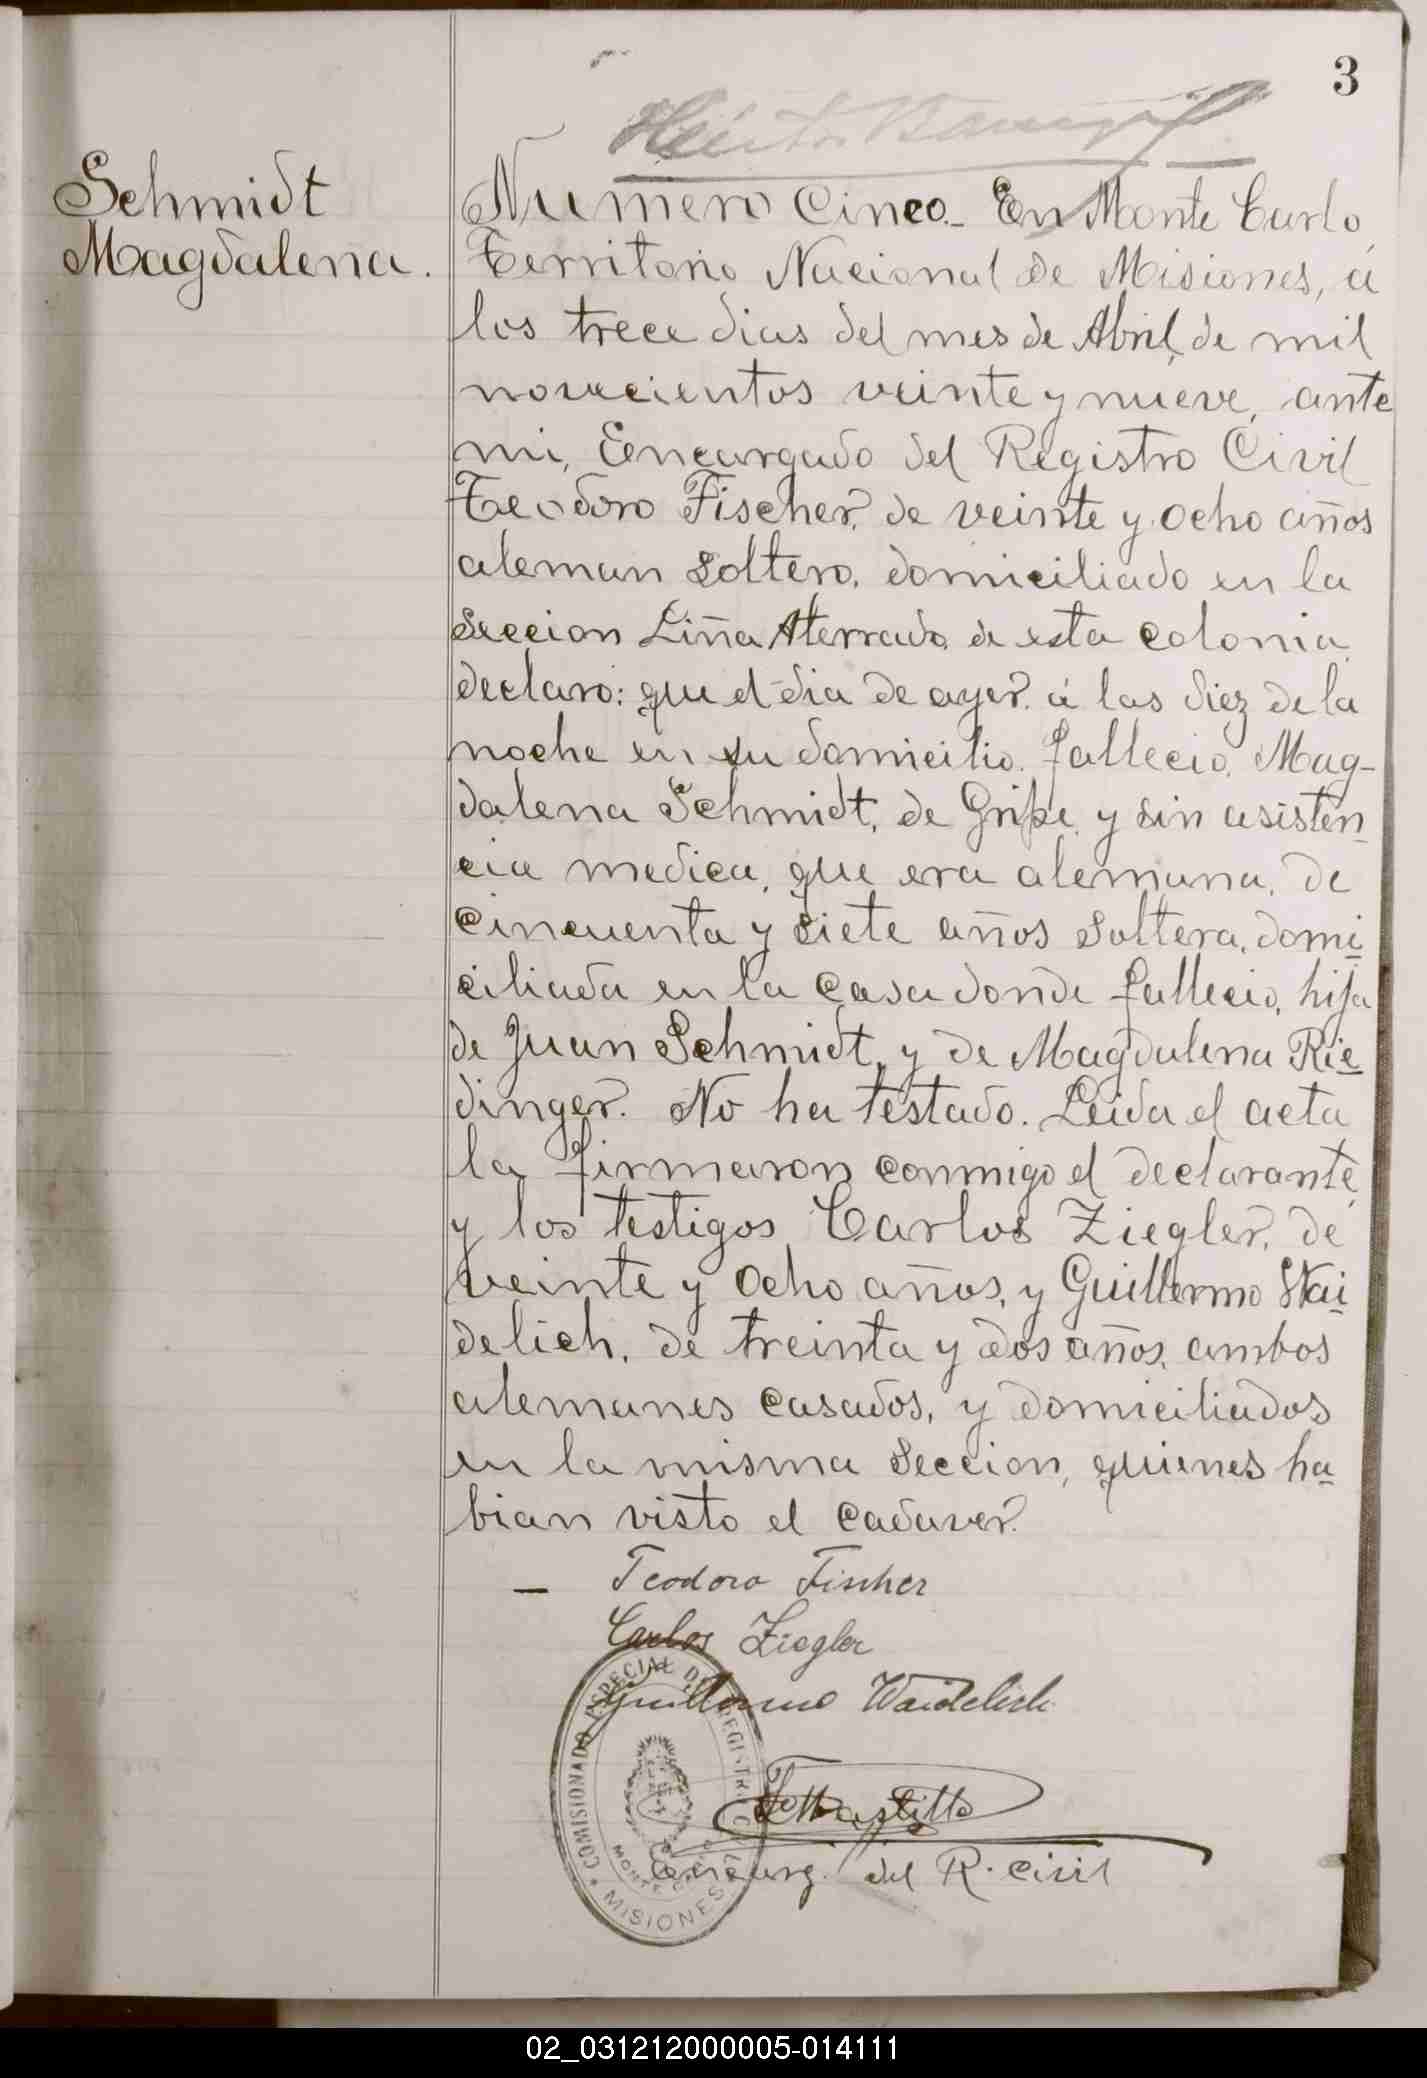 3
Schmidt
Magdalena.
Numero Cinco.- En Monte Carlo,
Territorio Nacional de Misiones, á
los trece dias del mes de Abril, de mil
novecientos veinte y nueve, ante
mi, Encargado del Registro Civil
Teodoro Fischer, de veinte y ocho años
aleman soltero, domiciliado en la
Seccion Liña Aterrado, de esta colonia,
declaro: que el dia de ayer á las diez de la
noche en su domicilio, fallecio, Mag-
dalena Schmidt, de Gripe, y sin asisten
cia medica, que era alemana, de
cincuenta y siete años soltera, domi
ciliada en la casa donde fallecio, hija
de Juan Schmidt, y de Magdalena Rie
dinger. No ha testado. Leida el acta
la firmaron conmigo el declarante,
y los testigos, Carlos Ziegler, de
veinte y ocho años, y Guillermo Wai
delich, de treinta y dos años, ambos
alemanes casados, y domiciliados
en la misma Seccion, quienes ha
bian visto el cadaver.
- Teodoro Fischer
Carlos Ziegler
Guillermo Waidelich
COMISIONADO ESPECIAL DEL REGISTRO CIVIL
MONTE CARLO
MISIONES
Encarg. del R. Civil
02_031212000005-014111